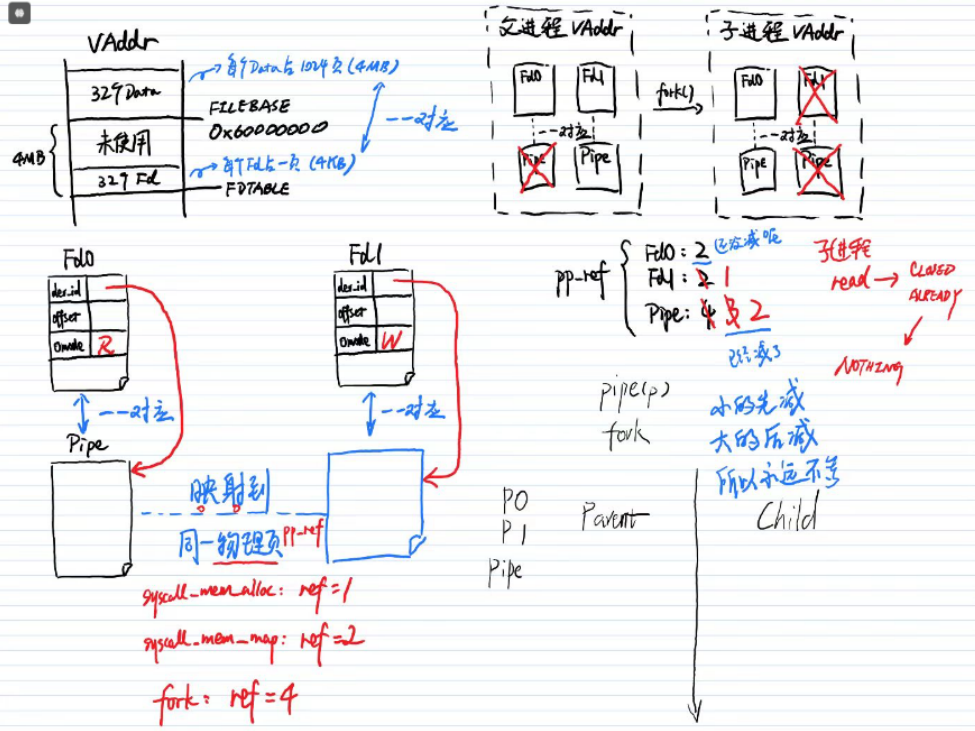 VAddr
32个Data
每个Data占1024页(4MB)
FILEBASE
0x60000000
一一对应
未使用
4MB
32个Fd
每个Fd占一页(4KB)
FDTABLE
父进程 VAddr
Fd0
Fd1
一一对应
Pipe
Pipe
fork()
子进程 VAddr
Fd0
Fd1
一一对应
Pipe
Pipe
Fd0
dev_id
offset
omode R
一一对应
Pipe
Fd1
dev_id
offset
omode W
一一对应
映射到
同一物理页 pp_ref
syscall_mem_alloc: ref=1
syscall_mem_map: ref=2
fork: ref=4
pp_ref
Fd0: 2 还没减呢
Fd1: 2 1
Pipe: 4 3 2
已经减了
子进程
read → CLOSED
ALREADY
NOTHING
pipe(p)
fork
小的先减
大的后减
所以永远不等
P0
P1
Pipe
Parent
Child